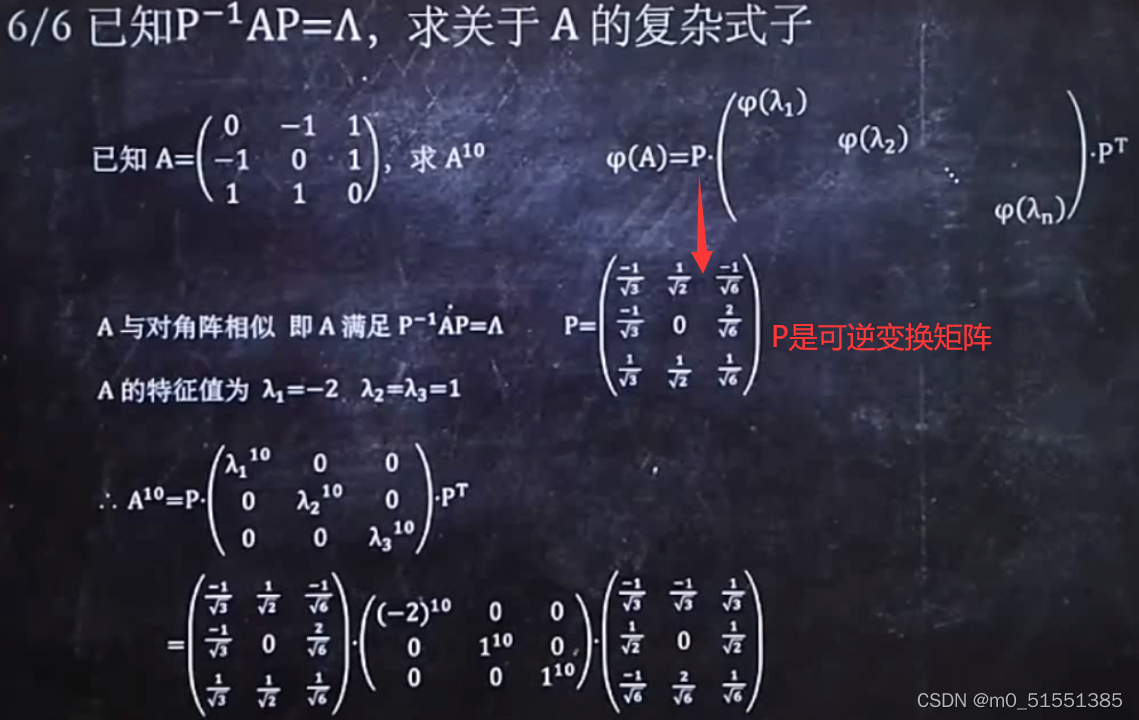 6/6 已知P⁻¹AP=Λ，求关于 A 的复杂式子
已知 A=(0 −1 1; −1 0 1; 1 1 0)，求 A¹⁰
φ(A)=P·(φ(λ₁) φ(λ₂) ⋱ φ(λₙ))·Pᵀ
A 与对角阵相似 即 A 满足 P⁻¹AP=Λ
P=(−1/√3 1/√2 −1/√6; −1/√3 0 2/√6; 1/√3 1/√2 1/√6)
P是可逆变换矩阵
A 的特征值为 λ₁=−2 λ₂=λ₃=1
∴ A¹⁰=P·(λ₁¹⁰ 0 0; 0 λ₂¹⁰ 0; 0 0 λ₃¹⁰)·Pᵀ
=(−1/√3 1/√2 −1/√6; −1/√3 0 2/√6; 1/√3 1/√2 1/√6)·((−2)¹⁰ 0 0; 0 1¹⁰ 0; 0 0 1¹⁰)·(−1/√3 −1/√3 1/√3; 1/√2 0 1/√2; −1/√6 2/√6 1/√6)
CSDN @m0_51551385